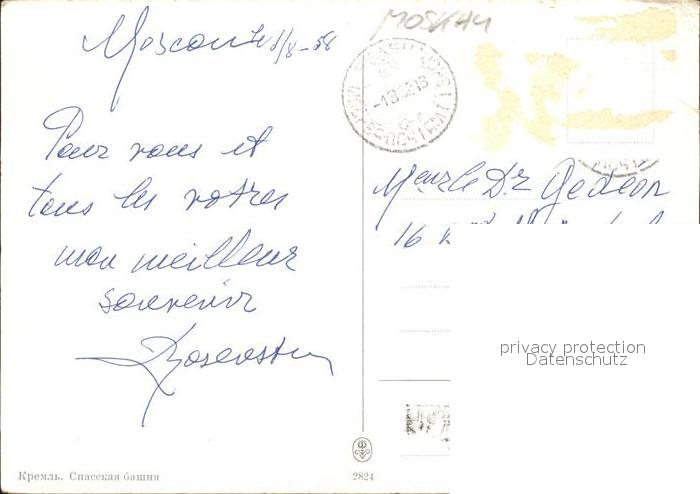 Moscou le 1/8-58
MOSKAU
Pour vous et
tous les votres
mon meilleur
souvenir
Mr le Dr Gedeon
16
privacy protection
Datenschutz
Кремль. Спасская башня
2824